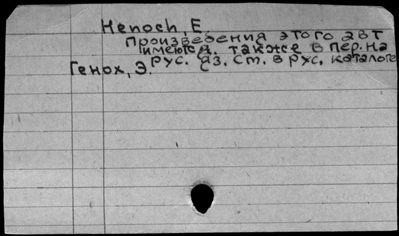 Henoch, E
Произведения этого авт
имеются также в пер. на
рус. яз. см. в рус. каталоге
Генох, Э.